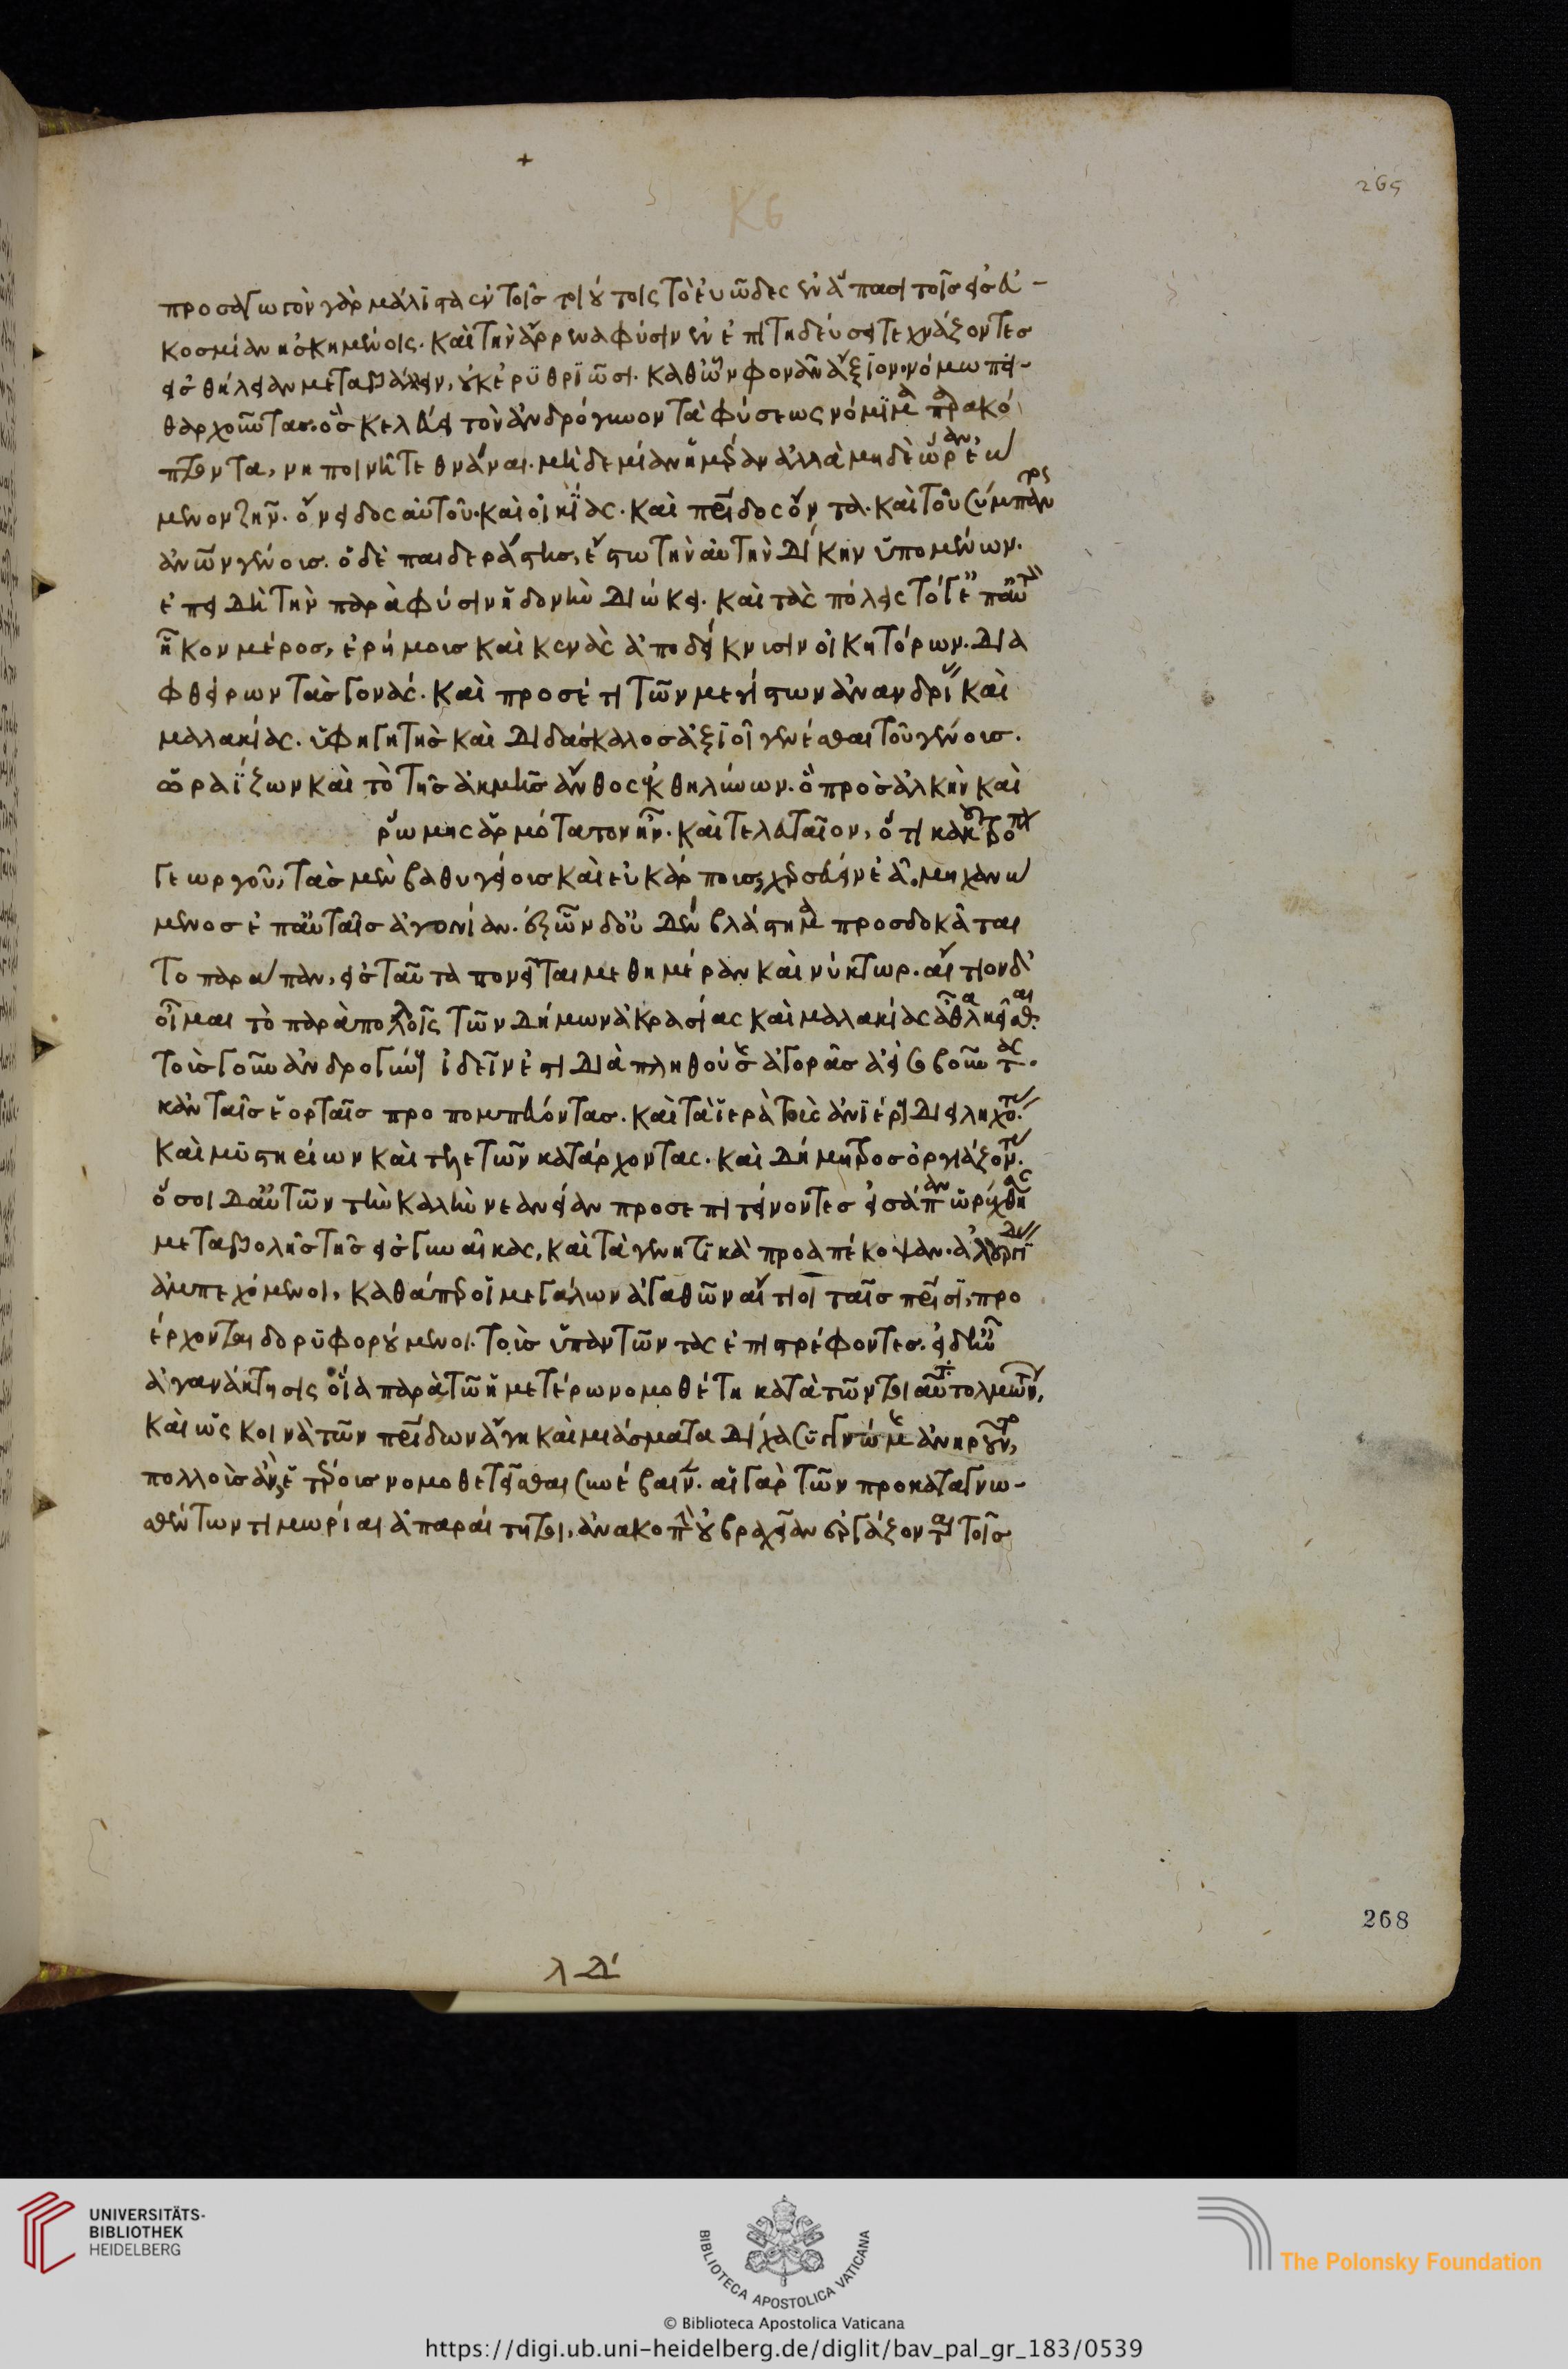 265
Κϛ
προσάγωτον γὰρ μάλιστα ἐν τοῖς τοιούτοις τὸ εὐῶδες ἐν ἅπασι τοῖς εἰς εὐ-
κοσμίαν ἠσκημένοις. καὶ τὴν ἄρρενα φύσιν ἐν ἐπιτηδεύσει τεχνάζοντες
εἰς θήλειαν μεταβάλλειν, οὐκ ἐρυθριῶσι. καθ' ὧν φονᾶν ἄξιον. νόμω πει-
θαρχοῦντας. ὃς κελεύει τὸν ἀνδρόγυνον τὰ φύσεως νόμισμα παρακό
πτοντα, νηποινὴ τεθνάναι. μὴ δὲ μίαν ἡμέραν ἀλλὰ μηδὲ ὥραν ἐώ
μενον ζῆν. ὄνειδος αὐτοῦ. καὶ οἰκίας. καὶ πατρίδος ὄντα. καὶ τοῦ σύμπαντος
ἀνθρώπων γένους. ὁ δὲ παιδεράστης, ἔστω τὴν αὐτὴν δίκην ὑπομένων.
ἐπειδὴ τὴν παρὰ φύσιν ἡδονὴν διώκει. καὶ τὰς πόλεις τό γε ἐπ' αὐτὸν
ἧκον μέρος, ἐρήμους καὶ κενὰς ἀποδείκνυσιν οἰκητόρων. δια
φθείρων τὰς γονάς. καὶ προσέτι τῶν μεγίστων ἀνανδρίας καὶ
μαλακίας. ὑφηγητὴς καὶ διδάσκαλος ἀξιοῖ γενέσθαι τοῦ γένους.
ὡραΐζων καὶ τὸ τῆς ἀκμῆς ἄνθος ἐκθηλύνων. ὃ πρὸς ἀλκὴν καὶ
ῥώμης ἁρμότατον ἦν. καὶ τελευταῖον, ὅτι κακοῦ τρόπον
γεωργοῦ, τὰς μὲν βαθυγείους καὶ εὐκάρπους, χερσεύειν ἐᾶ. μηχανώ
μενος ἐπ' αὐταῖς ἀγονίαν. ἐξ ὧν δ' οὐδὲν βλάστημα προσδοκᾶται
τοπαράπαν, εἰς ταῦτα πονεῖται μεθημέραν καὶ νύκτωρ. αἴτιον δ'
οἶμαι τὸ παρὰ πολλοῖς τῶν δήμων ἀκρασίας καὶ μαλακίας ἆθλα κεῖσθαι
τοὺς γοῦν ἀνδρογύνους ἰδεῖν ἐστι διὰ πληθούσης ἀγορᾶς ἀεὶ σοβοῦντας.
κἀν ταῖς ἑορταῖς προπομπεύοντας. καὶ τὰ ἱερὰ τοὺς ἀνιέρους διειληχότας.
καὶ μυστηρίων καὶ τελετῶν κατάρχοντας. καὶ Δήμητρος ὀργιάζοντας.
ὅσοι δ' αὐτῶν τὴν καλὴν νεανείαν προσεπιτείνοντες εἰσάπαν ὠρέχθησαν
μεταβολῆς τῆς εἰς γυναῖκας, καὶ τὰ γενητικὰ προαπέκοψαν. ἁλουργίδας
ἀμπεχόμενοι, καθάπερ οἱ μεγάλων ἀγαθῶν αἴτιοι ταῖς πατρίσι, προ
έρχονται δορυφορούμενοι. τοὺς ὑπαντῶντας ἐπιστρέφοντες. εἰ δ' ἦν
ἀγανάκτησις οἵα παρὰ τῶ ἡμετέρω νομοθέτη κατὰ τῶν τοιαῦτα τολμώντων,
καὶ ὡς κοινὰ τῶν πατρίδων ἄγη καὶ μιάσματα δίχα συγγνώμης ἀνηροῦντο,
πολλοὺς ἂν ἑτέρους νομοθετεῖσθαι συνέβαινεν. αἱ γὰρ τῶν προκαταγνω-
σθέντων τιμωρίαι ἀπαραίτητοι, ἀνακοπὴν οὐ βραχεῖαν ἐργάζονται τοῖς
268
λδ'
UNIVERSITÄTS-
BIBLIOTHEK
HEIDELBERG
BIBLIOTECA APOSTOLICA VATICANA
The Polonsky Foundation
© Biblioteca Apostolica Vaticana
https://digi.ub.uni-heidelberg.de/diglit/bav_pal_gr_183/0539